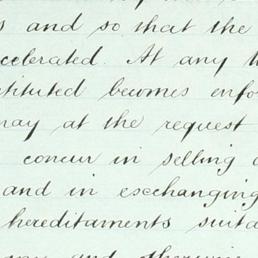 s and so that the
celerated. At any t
stituted becomes enfo
may at the request
concur in selling
and in exchanging
hereditaments suita
and otherwise